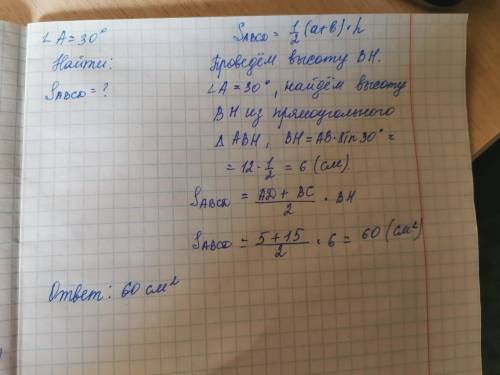 ∠A = 30°
Найти:
S_ABCD = ?
S_ABCD = 1/2 (a+b) · h
Проведём высоту BH.
∠A = 30°, найдём высоту
BH из прямоугольного
Δ ABH, BH = AB · sin 30° =
= 12 · 1/2 = 6 (см).
S_ABCD = (AD + BC)/2 · BH
S_ABCD = (5 + 15)/2 · 6 = 60 (см²)
Ответ: 60 см²